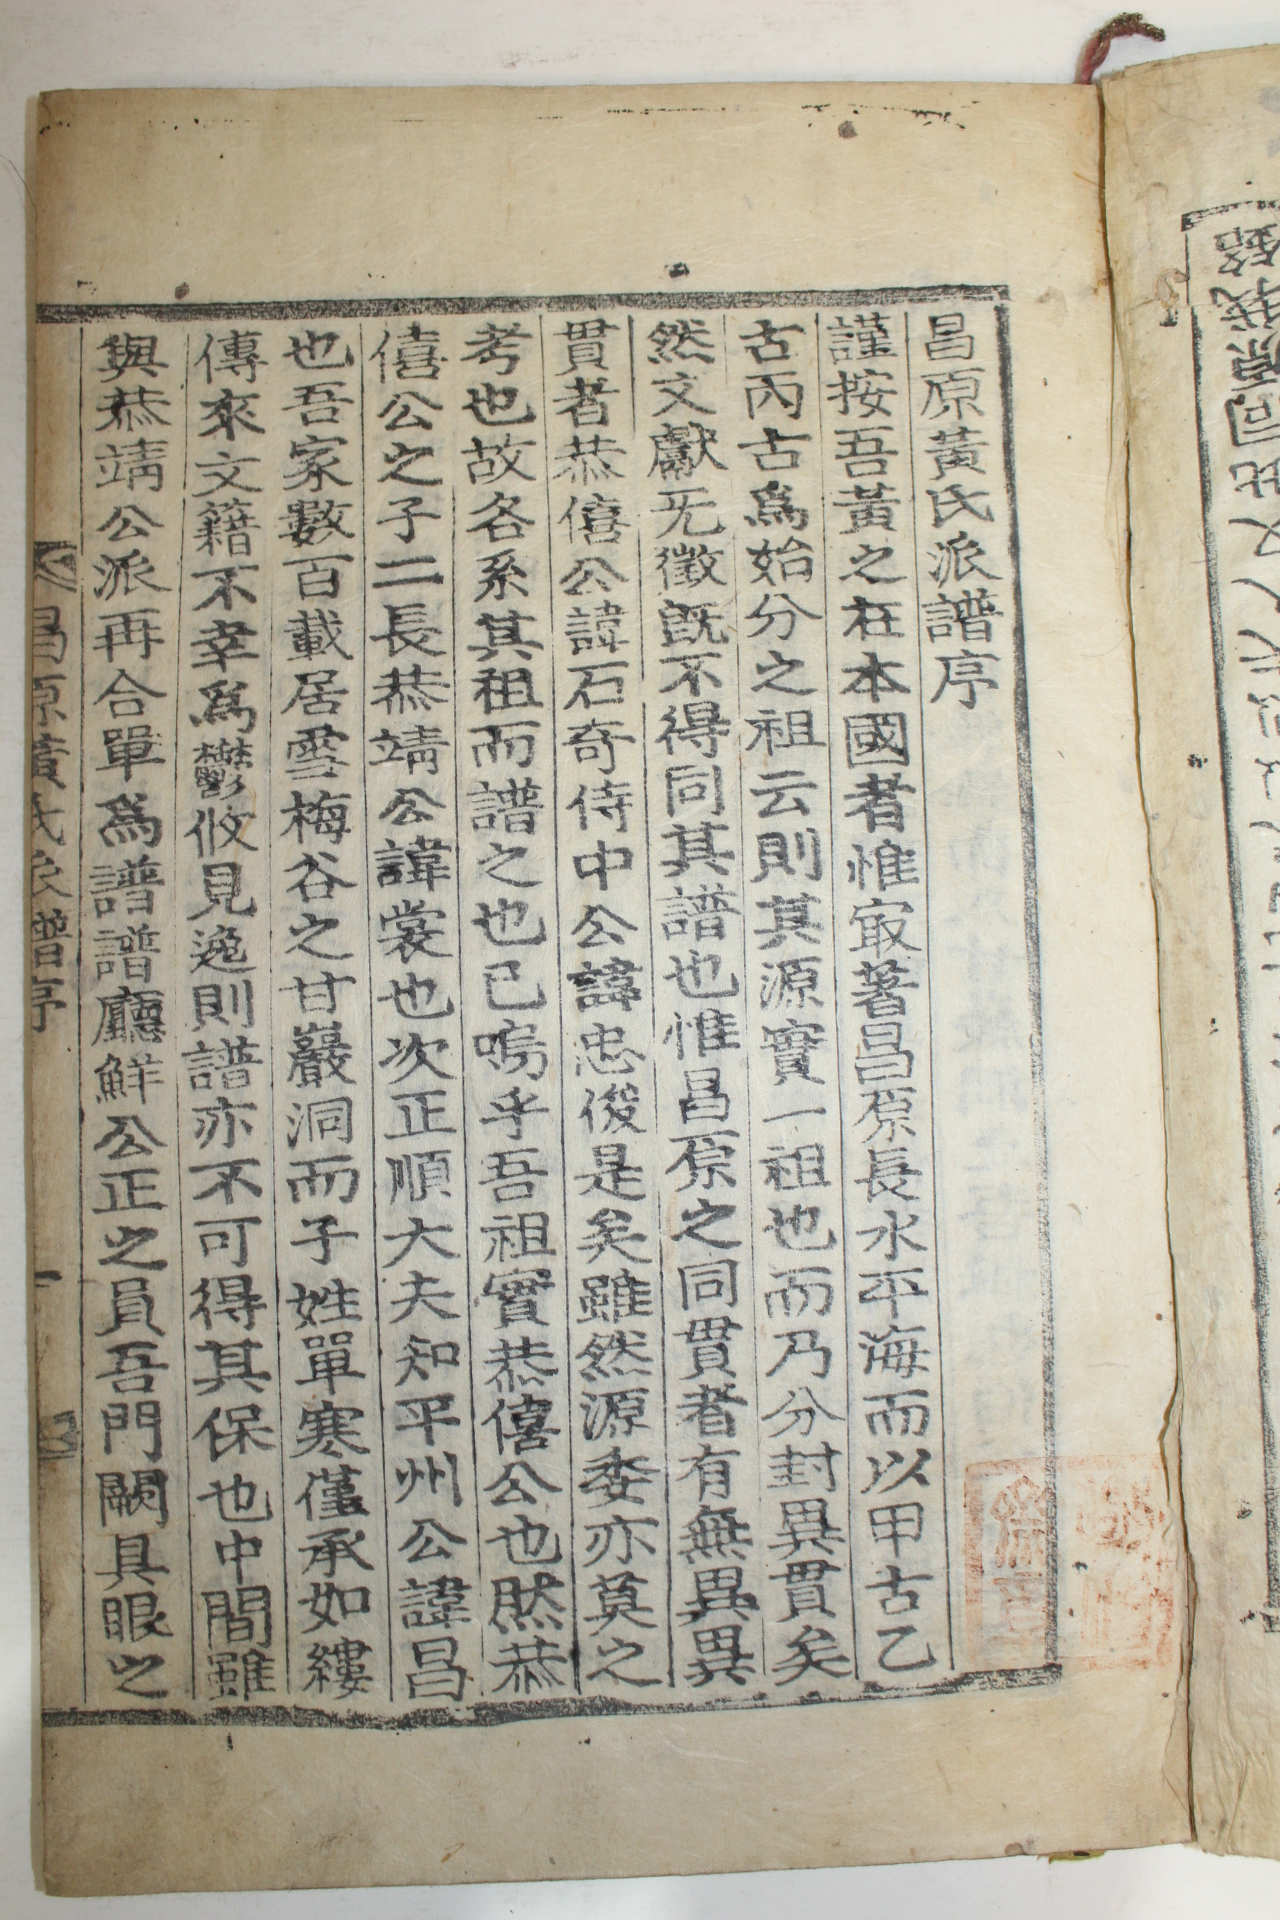 昌原黃氏派譜序
謹按吾黃之在本國者惟㝡著昌原長水平海而以甲古乙
古丙古爲始分之祖云則其源實一祖也而乃分封異貫矣
然文獻旡徵旣不得同其譜也惟昌原之同貫者有無異異
貫者恭僖公諱石奇侍中公諱忠俊是矣雖然源委亦莫之
考也故各系其祖而譜之也已嗚乎吾祖實恭僖公也然恭
僖公之子二長恭靖公諱裳也次正順大夫知平州公諱昌
也吾家數百載居雲梅谷之甘巖洞而子姓單寒僅承如縷
傳來文籍不幸爲鬱攸見逸則譜亦不可得其保也中間雖
與恭靖公派再合單爲譜譜廳鮮公正之員吾門闕具眼之
昌原黃氏派譜序
一